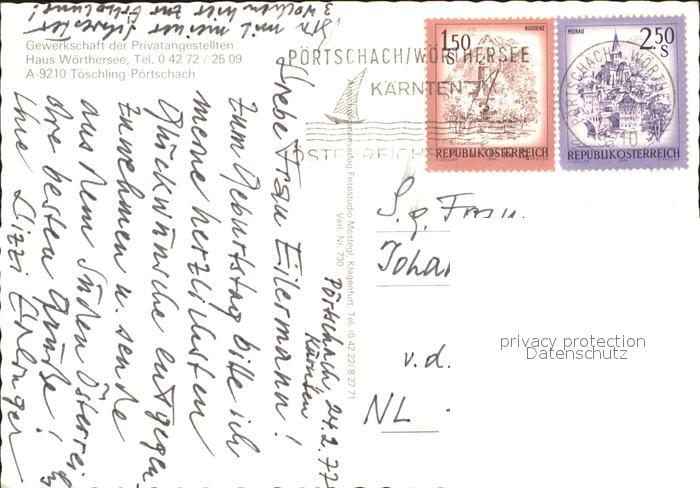 Bin mit meiner Schwester
3 Wochen hier zur Erholung!
Gewerkschaft der Privatangestellten
Haus Wörthersee, Tel. 0 42 72 / 25 09
A-9210 Töschling-Pörtschach
Pörtschach, 24.2.77
Kärnten
Liebe Frau Eilermann!
Zum Geburtstag bitte ich
meine herzlichsten
Glückwünsche entgegen
zu nehmen u. sende
aus dem Süden Österreichs
die besten Grüße!
Ihre Lizzi
Fotostudio Mostegl, Klagenfurt, Tel. (0 42 22) 8 27 71
Verl.-Nr. 730
PÖRTSCHACH/WÖRTHERSEE
KÄRNTEN
ÖSTERREICH
1.50
S
BLUDENZ
REPUBLIK ÖSTERREICH
2.50
S
MURAU
REPUBLIK ÖSTERREICH
S.g. Frau
Joha
v.d.
NL
privacy protection
Datenschutz